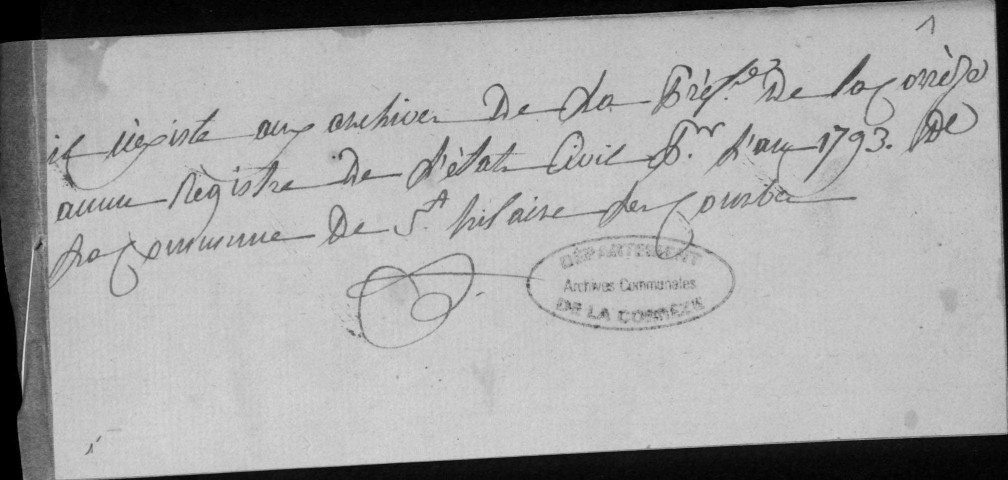 1
il n'existe aux archives De la Préf.re De la Corrèze
aucun Registre De l'état Civil P.r l'an 1793. De
la Commune De S.t hilaire les Courbes
DÉPARTEMENT
Archives Communales
DE LA CORRÈZE